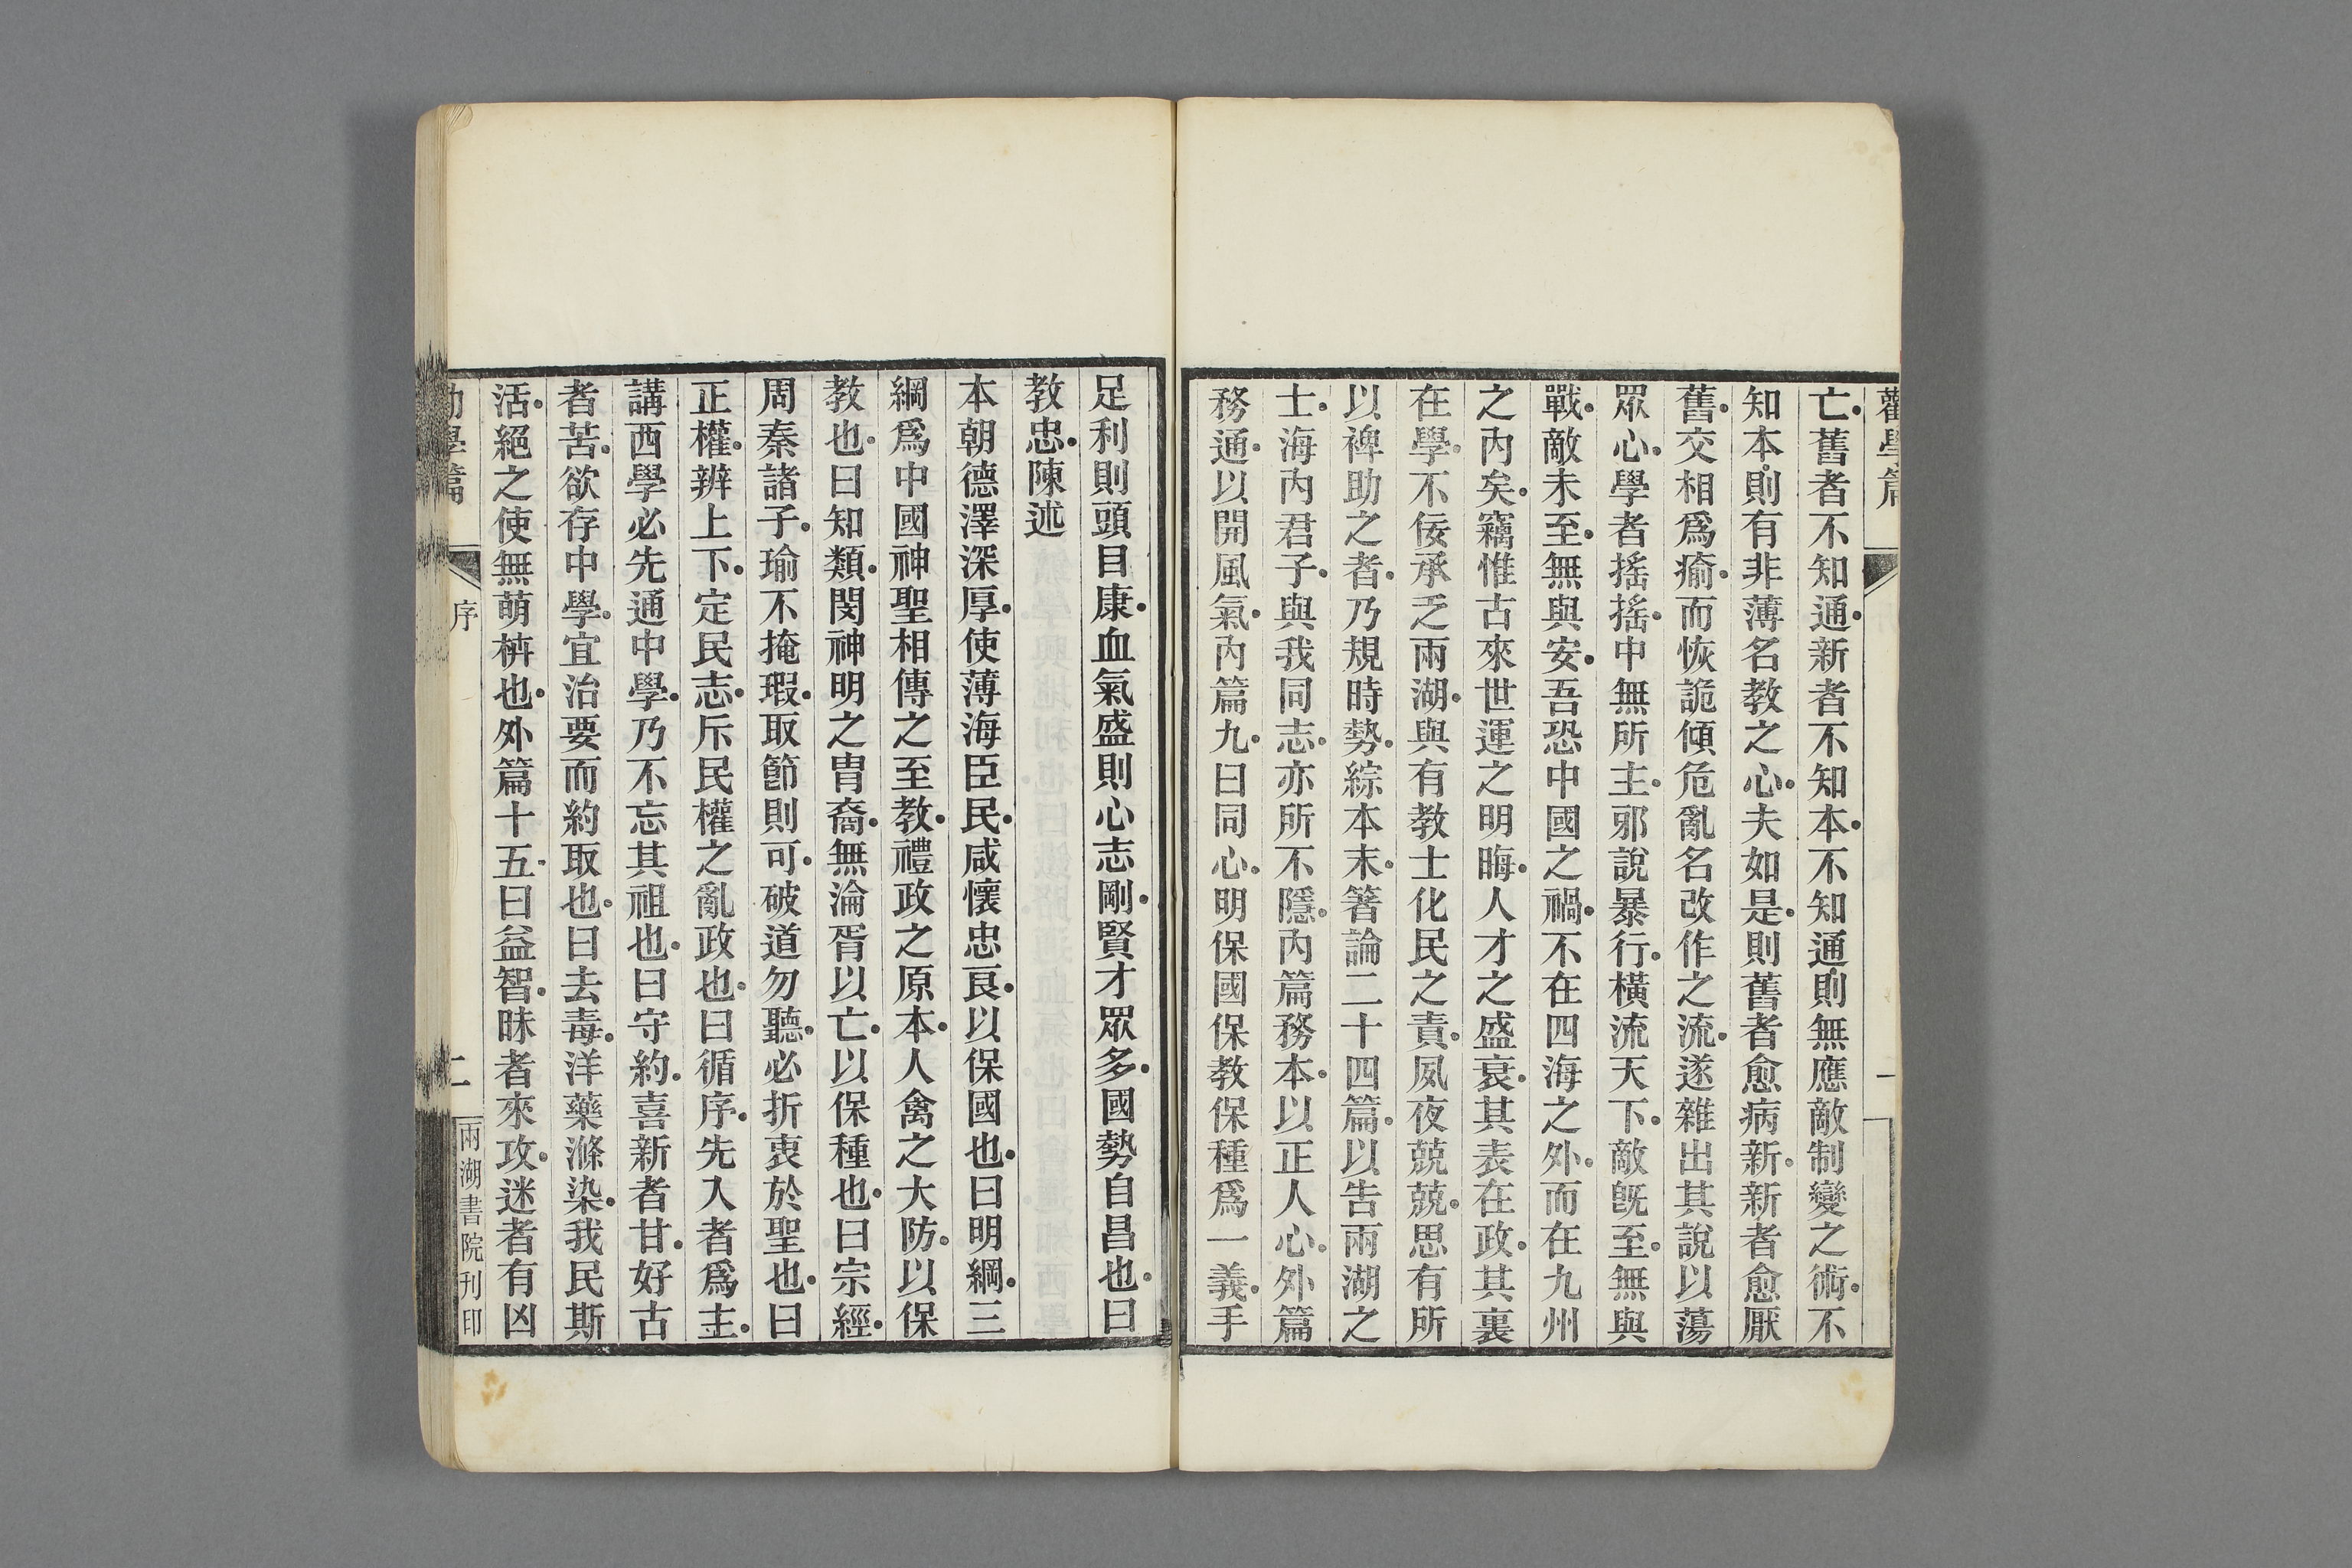 勸學篇
一
亡舊者不知通新者不知本不知通則無應敵制變之術不
知本則有非薄名教之心夫如是則舊者愈病新新者愈厭
舊交相爲瘉而恢詭傾危亂名改作之流遂雜出其說以蕩
眾心學者搖搖中無所主邪說暴行橫流天下敵旣至無與
戰敵未至無與安吾恐中國之禍不在四海之外而在九州
之內矣竊惟古來世運之明晦人才之盛衰其表在政其裏
在學不佞承乏兩湖與有教士化民之責夙夜兢兢思有所
以裨助之者乃規時勢綜本末箸論二十四篇以告兩湖之
士海內君子與我同志亦所不隱內篇務本以正人心外篇
務通以開風氣內篇九曰同心明保國保教保種爲一義手
足利則頭目康血氣盛則心志剛賢才眾多國勢自昌也曰
教忠陳述
本朝德澤深厚使薄海臣民咸懷忠良以保國也曰明綱三
綱爲中國神聖相傳之至教禮政之原本人禽之大防以保
教也曰知類閔神明之冑裔無淪胥以亡以保種也曰宗經
周秦諸子瑜不掩瑕取節則可破道勿聽必折衷於聖也曰
正權辨上下定民志斥民權之亂政也曰循序先入者爲主
講西學必先通中學乃不忘其祖也曰守約喜新者甘好古
者苦欲存中學宜治要而約取也曰去毒洋藥滌染我民斯
活絕之使無萌枿也外篇十五曰益智昧者來攻迷者有凶
勸學篇
序
二
兩湖書院刊印